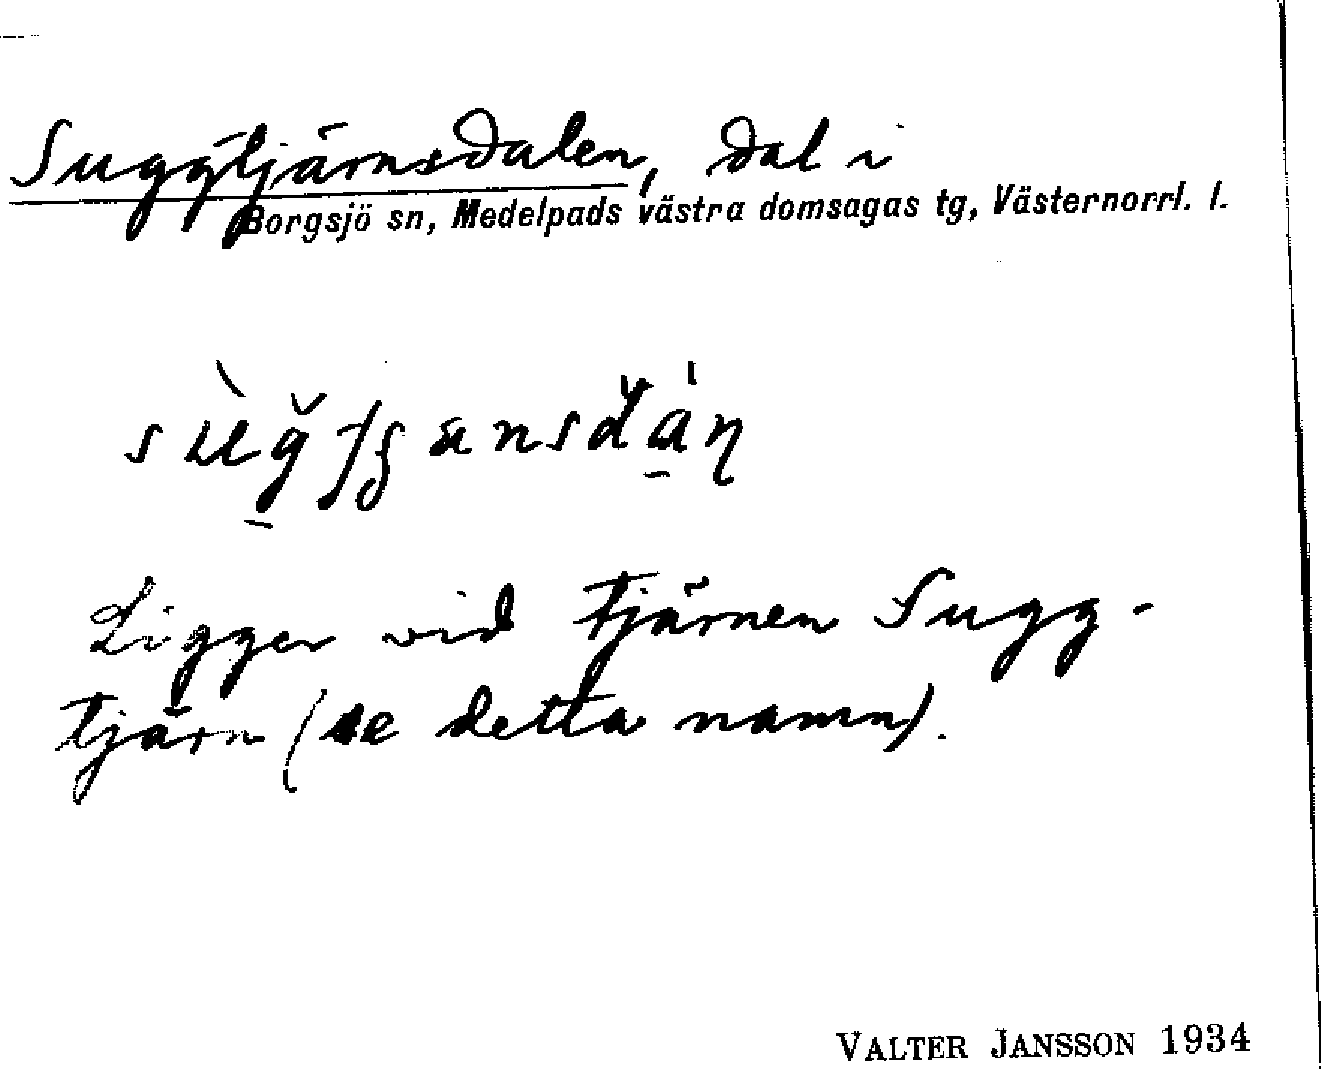 Suggtjärnsdalen, dal i
Borgsjö sn, Medelpads västra domsagas tg, Västernorrl. l.
Ligger vid tjärnen Sugg-
tjärn (se detta namn).
VALTER JANSSON 1934